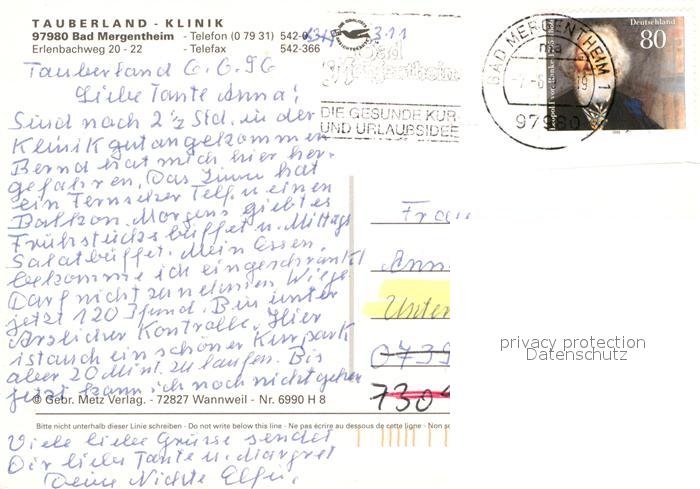 TAUBERLAND - KLINIK
97980 Bad Mergentheim - Telefon (0 79 31) 542-0
Erlenbachweg 20 - 22 - Telefax 542-366
Tauberland 6.6.96
Liebe Tante Anna!
Sind nach 2 1/2 Std. in der
Klinik gut angekommen
Bernd hat mich hier her-
gefahren. Das Zimm hat
ein Fernseher Telf. u einen
Balkon. Morgens giebt es
Frühstücksbüffet u. Mittags
Salatbüffet. Mein Essen,
bekomme ich eingeschränkt
Darf nicht zunehmen. Wiege
jetzt 120 Pfund. Bin unter
Ärzlicher Kontrolle. Hier
ist auch ein schöner Kurpark
aber 20 Mint. zu laufen. Bis
jetzt kann ich noch nicht gehen
© Gebr. Metz Verlag. - 72827 Wannweil - Nr. 6990 H 8
Bitte nicht unterhalb dieser Linie schreiben - Do not write below this line - Ne pas écrire au dessous de cette ligne - Non sc
Viele liebe Grüsse sendet
Dir liebe Tante u. Margret
Deine Nichte Elfri.
Bad
Mergentheim
DIE GESUNDE KUR-
UND URLAUBSIDEE
BAD MERGENTHEIM 1
ma
97980
Deutschland
80
Leopold von Ranke
Frau
Ann
Unter
0739
730
privacy protection
Datenschutz